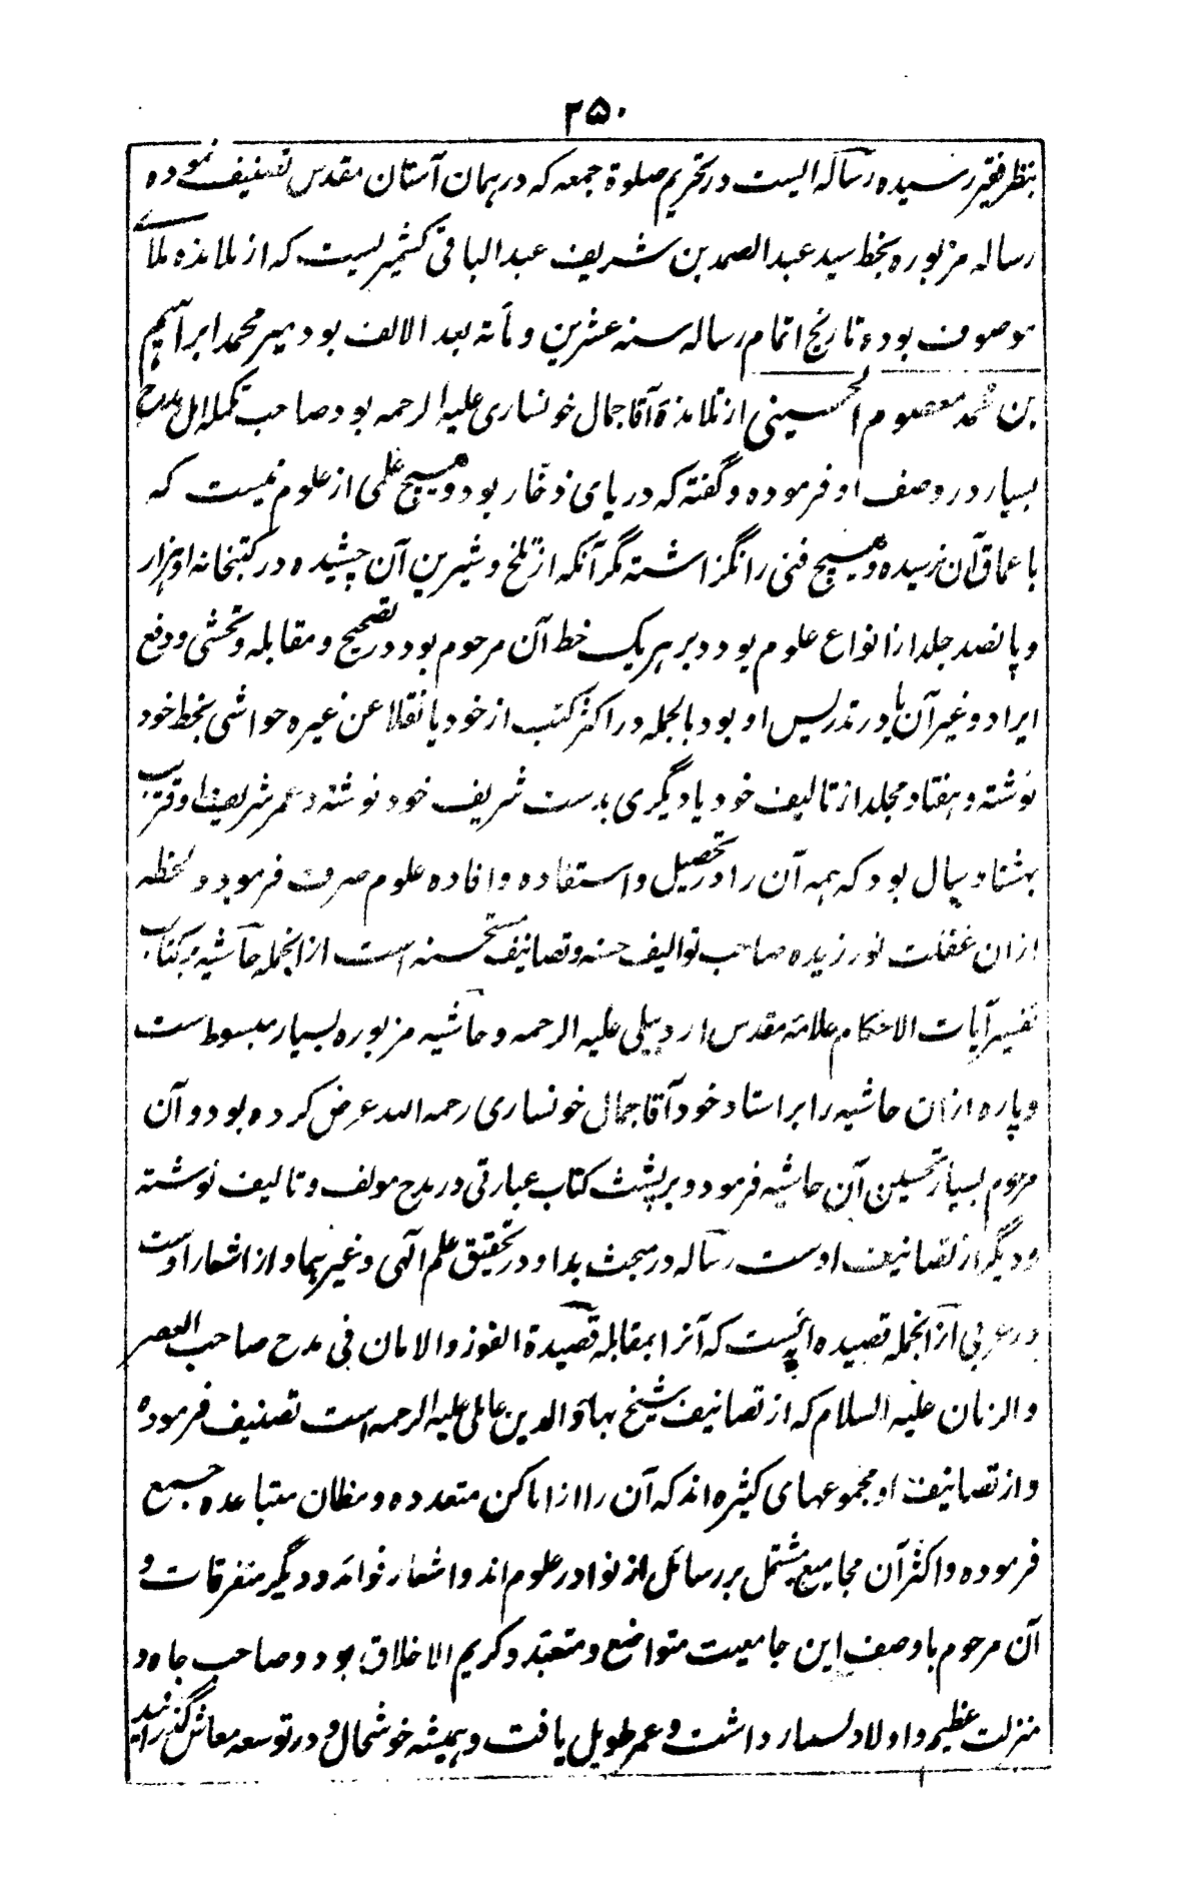 ۲۵۰
بنظر فقیر رسیده رساله ایست در تحریم صلوة جمعه که در همان آستان مقدس تصنیف نموده
رساله مزبوره بخط سید عبد الصمد بن شریف عبد الباقی کشمیریست که از تلامذه ملا
موصوف بوده تاریخ اتمام رساله سنه عشرین و مأته بعد الالف بود میر محمد ابراهیم
بن محمد معصوم الحسینی از تلامذة آقا جمال خونساری علیه الرحمه بود صاحب تکمله امل مدح
بسیار در وصف او فرموده و گفته که دریای ذخّار بود و هیچ علمی از علوم نیست که
باعماق آن نرسیده و هیچ فنی را نگزاشته مگر آنکه از تلخ و شیرین آن چشیده در کتبخانه او هزار
و پانصد جلد از انواع علوم بود و بر هر یک خط آن مرحوم بود در تصحیح و مقابله و تحشی و دفع
ایراد و غیر آن یا در تدریس او بود بالجمله در اکثر کتب از خود یا نقلا عن غیره حواشی بخط خود
نوشته و هفتاد مجلد از تالیف خود یا دیگری بدست شریف خود نوشته و عمر شریف او قریب
بهشتاد سال بود که همه آن را در تحصیل و استفاده و افاده علوم صرف فرمود و لحظه
ازان غفلت نورزیده صاحب توالیف حسنه و تصانیف مستحسنه است ازانجمله حاشیه بر کتاب
تفسیر آیات الاحکام علامه مقدس اردبیلی علیه الرحمه و حاشیه مزبوره بسیار مبسوط است
و پاره ازان حاشیه را بر استاد خود آقا جمال خونساری رحمه الله عرض کرده بود و آن
مرحوم بسیار تحسین آن حاشیه فرمود و بر پشت کتاب عبارتی در مدح مولف و تالیف نوشته
و دیگر از تصانیف اوست رساله در مبحث بدا و در تحقیق علم آلهی و غیرهما و از اشعار اوست
در عربی ازانجمله قصیده ایست که آنرا بمقابله قصیدة الفوز والامان فی مدح صاحب العصر
والزمان علیه السلام که از تصانیف شیخ بهاء الدین عاملی علیه الرحمه است تصنیف فرموده
و از تصانیف او مجموعهای کثیره اند که آن را از اماکن متعدده و مظان متباعده جمیع
فرموده و اکثر آن مجامیع مشتمل بر رسائل از نوادر علوم اند و اشعار فوائد و دیگر متفرقات و
آن مرحوم با وصف این جامعیت متواضع و متعبد و کریم الاخلاق بود و صاحب جاه و
منزلت عظیم و اولاد بسیار داشت و عمر طویل یافت و همیشه خوشحال و در توسعه معاش گذرانید